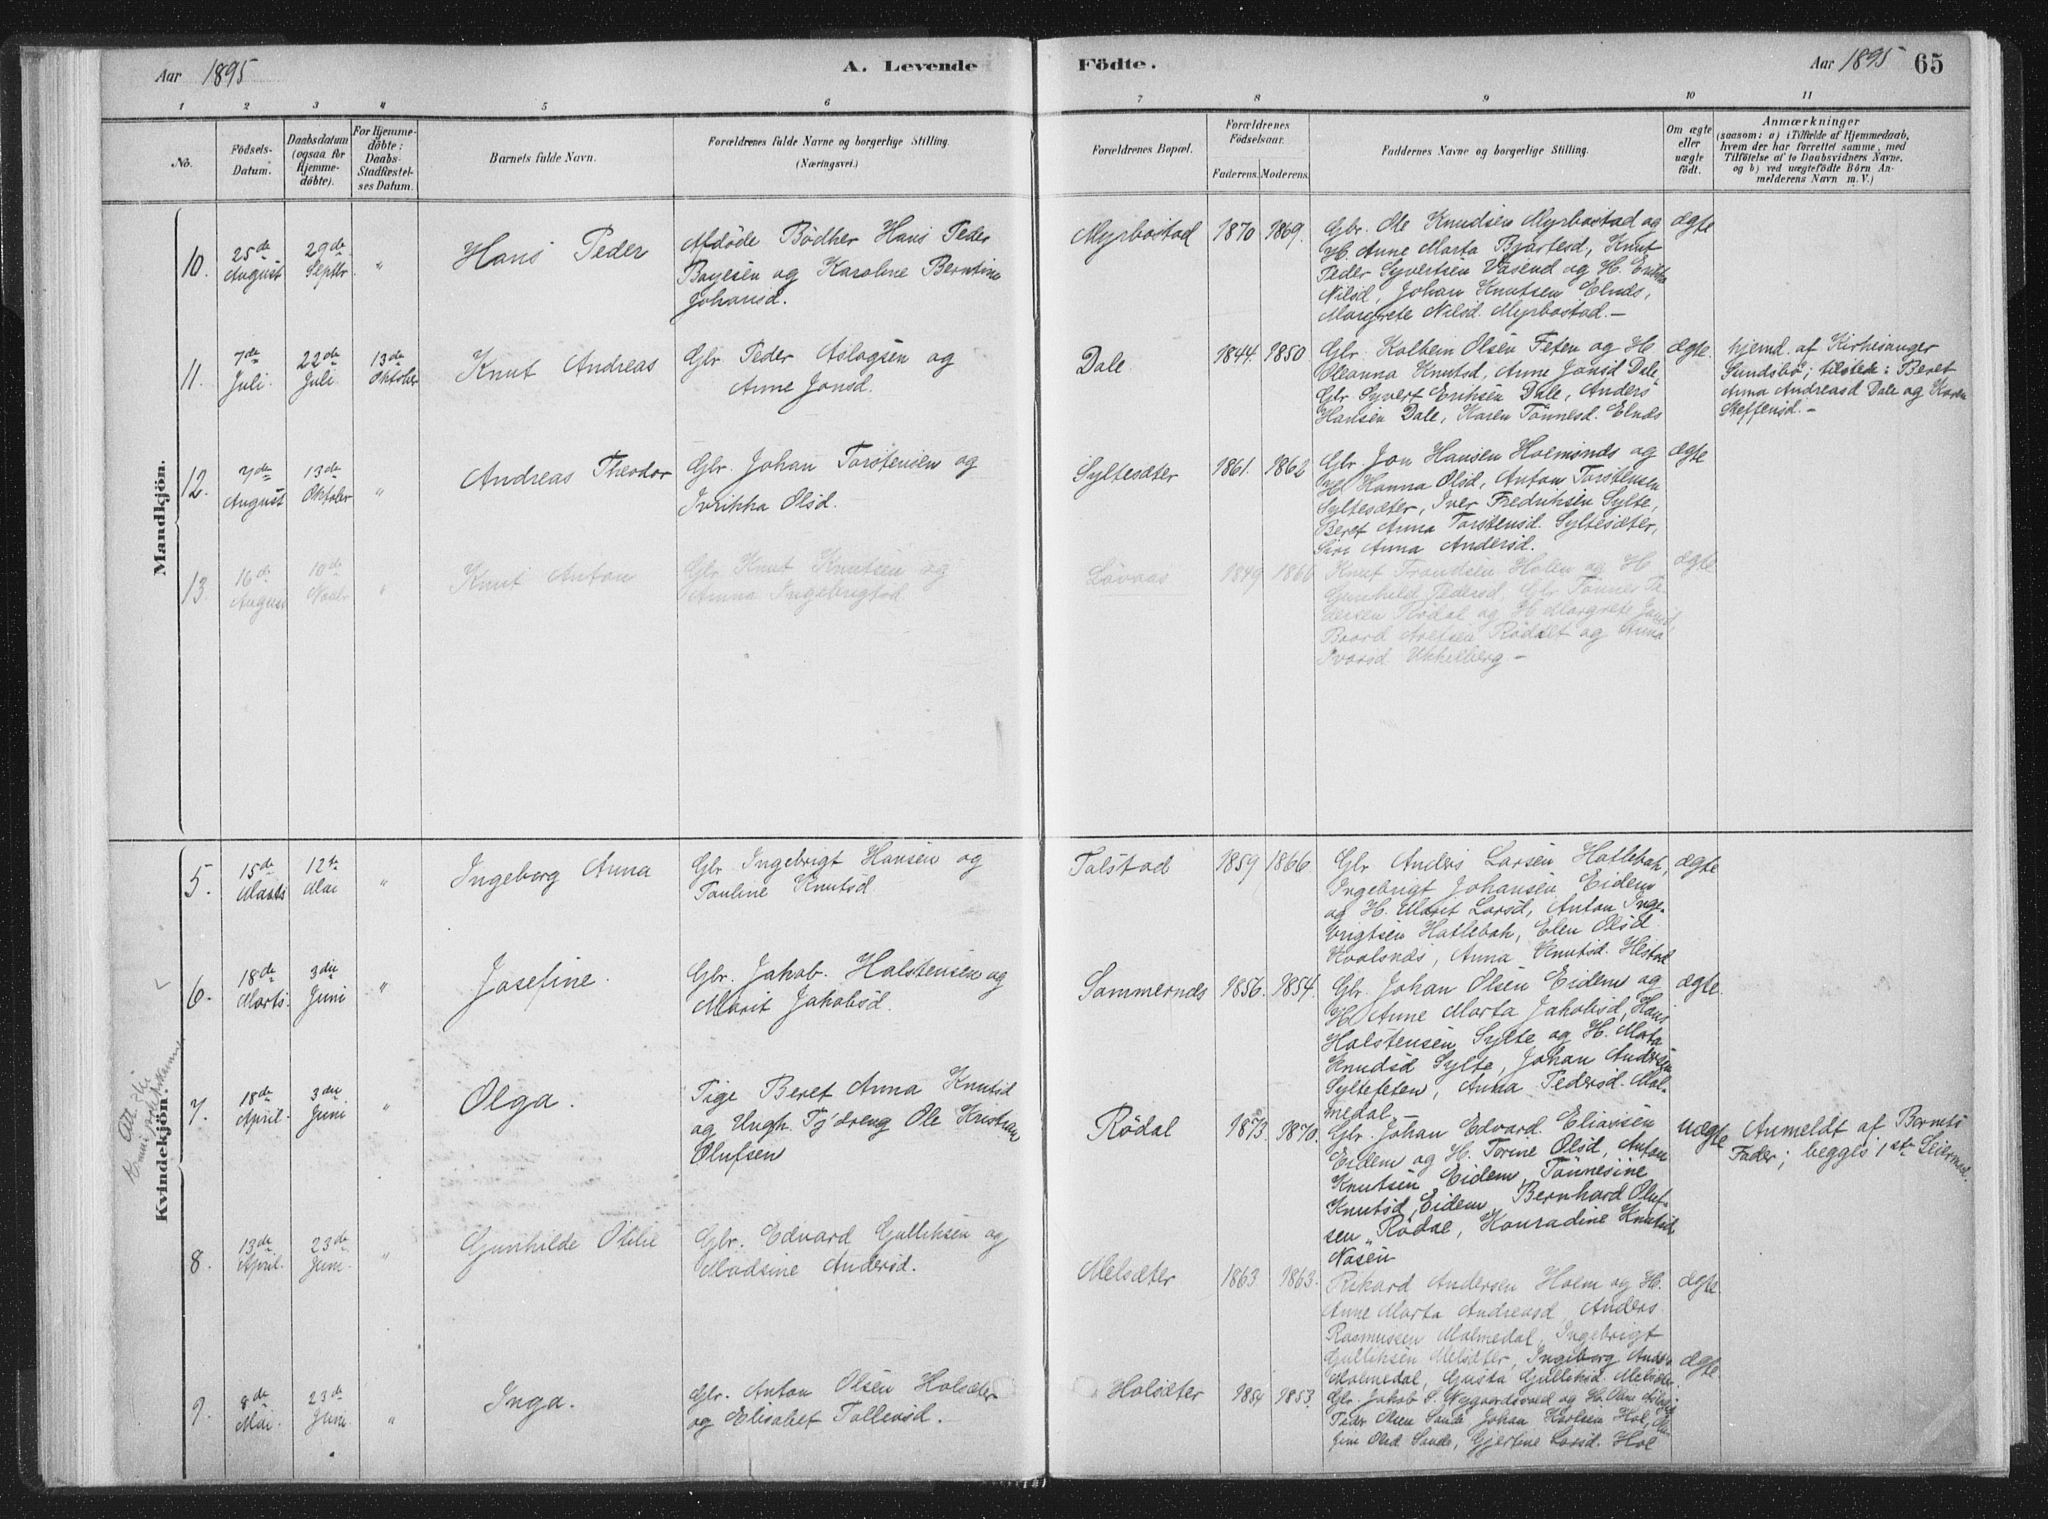 Aar 1895
A. Levende
Födte.
Aar 1895
65
1 2 3 4 5 6 7 8 9 10 11
No.
Födsels-
Datum.
Daabsdatum
(ogsaa for
Hjemme-
döbte).
For Hjemme-
döbte:
Daabs-
Stadfæstel-
ses Datum.
Barnets fulde Navn.
Forældrenes fulde Navne og borgerlige Stilling.
(Næringsvei.)
Forældrenes Bopæl.
Forældrenes
Födselsaar.
Faderens. Moderens.
Faddernes Navne og borgerlige Stilling.
Om ægte
eller
uægte
födt.
Anmærkninger
(saasom: a) i Tilfælde af Hjemmedaab,
hvem der har forrettet samme, med
Tilföielse af to Daabsvidners Navne,
og b) ved uægtefödte Börn An-
melderens Navn m. V.)
Mandkjön.
10.
25de
August
29de
Septbr.
"
Hans Peder
Afdöde Bödker Hans Peder
Bayesen og Karoline Berntine
Johansd.
Myrbostad
1870
1869.
Gbr. Ole Knudsen Myrbostad og
H. Anne Marta Bjartesd, Knut
Peder Syvertsen Vasend og H. Erikka
Nilsd, Johan Knutsen Elnds,
Margrete Nilsd. Myrbostad.—
ægte
11.
7de
Juli
22de
Juli
13de
Oktober
Knut Andreas
Gbr. Peder Aslagsen og
Anne Jonsd.
Dale
1844.
1850
Gbr. Kolbein Olsen Feten og H.
Oleanna Knutsd, Anne Jonsd Dale
Gbr Syvert Eriksen Dale, Anders
Hansen Dale, Karen Tönnesd. Elnds
ægte.
hjemd. af Kirkesanger
Sundsbö; tilstede: Beret
Anna Andreasd Dale og Karen
Steffensd.—
12.
7de
August
13de
Oktober
"
Andreas Theodor
Gbr. Johan Torstensen og
Ivrikka Olsd.
Syltesæter
1861.
1862
Gbr. Jon Hansen Holmsnds og
H. Hanna Olsd, Anton Torstensen
Syltesæter, Iver Fredriksen Sylte,
Beret Anna Torstensd. Syltesæter,
Siri Anna Andersd.
ægte
13.
16de
August
10de
Novbr
"
Knut Anton
Gbr Knut Knutsen og
Anna Ingebrigtsd.
Lövaas
1849
1866
Knut Trondsen Holen og H.
Gunhild Pedersd, Gbr Tönner Pe-
dersen Rödal og H. Margrete Jonsd,
Baard Rödal og Anna
Ivarsd Ukkelberg —
ægte
Kvindekjön.
5.
15de
Marts
12te
Mai
"
Ingeborg Anna
Gbr Ingebrigt Hansen og
Pauline Knutsd.
Talstad
1859
1866
Gbr Anders Larsen Hatlebak,
Ingebrigt Johansen Eidem
og H. Marit Larsd, Anton Inge-
brigtsen Hatlebak, Elen Olsd
Hoalsnds, Anna Knutsd. Hestad
ægte
6.
18de
Marts.
3die
Juni
"
Josefine.
Gbr. Jakob. Halstensen og
Marit Jakobsd.
Sammernds
1856.
1854.
Gbr. Johan Olsen Eidem og
H. Anne Marta Jakobsd, Hans
Halstensen Sylte og H. Marta
Knudsd Sylte, Johan Andersen
Syltefeten, Anna Pedersd. Mal-
medal
ægte.
7.
18de
April.
3die
Juni
"
Olga.
Pige Beret Anna Knutsd
og Ungk. Tj.dreng Ole Kristian
Olufsen
Rödal
1873.
1870.
Gbr. Johan Edvard Eliasen
Eidem og H. Torine Olsd, Anton
Knutsen Eidem, Tönnesine
Knutsd, Eidem, Bernhard Oluf-
sen Rödal, Konradine Knutsd
Nåsen
uægte
Anmeldt af Barnets
Fader; begges 1ste Leiermaal.
8.
13de
April.
23de
Juni.
"
Gunhilde Otilie
Gbr. Edvard Gulliksen og
Madsine Andersd.
Melsæter
1863
1863.
Rikard Andersen Holm og H.
Anne Marta Andreasd, Anders
Rasmussen Malmedal, Ingebrigt
Gulliksen Melsæter, Ingeborg Andsd
Malmedal, Gusta Gulliksd. Melsæter
ægte.
9.
8de
Mai.
23de
Juni.
"
Inga.
Gbr. Anton Olsen Holsæter
og Elisabet Tollevsd.
Holsæter
1854
1853.
Gbr. Jakob S. Nygaardsvold og H.
Peder Olsen Sande, Johan Karlsen Hol,
Olsd Sande, Gjertine Larsd. Hol
ægte